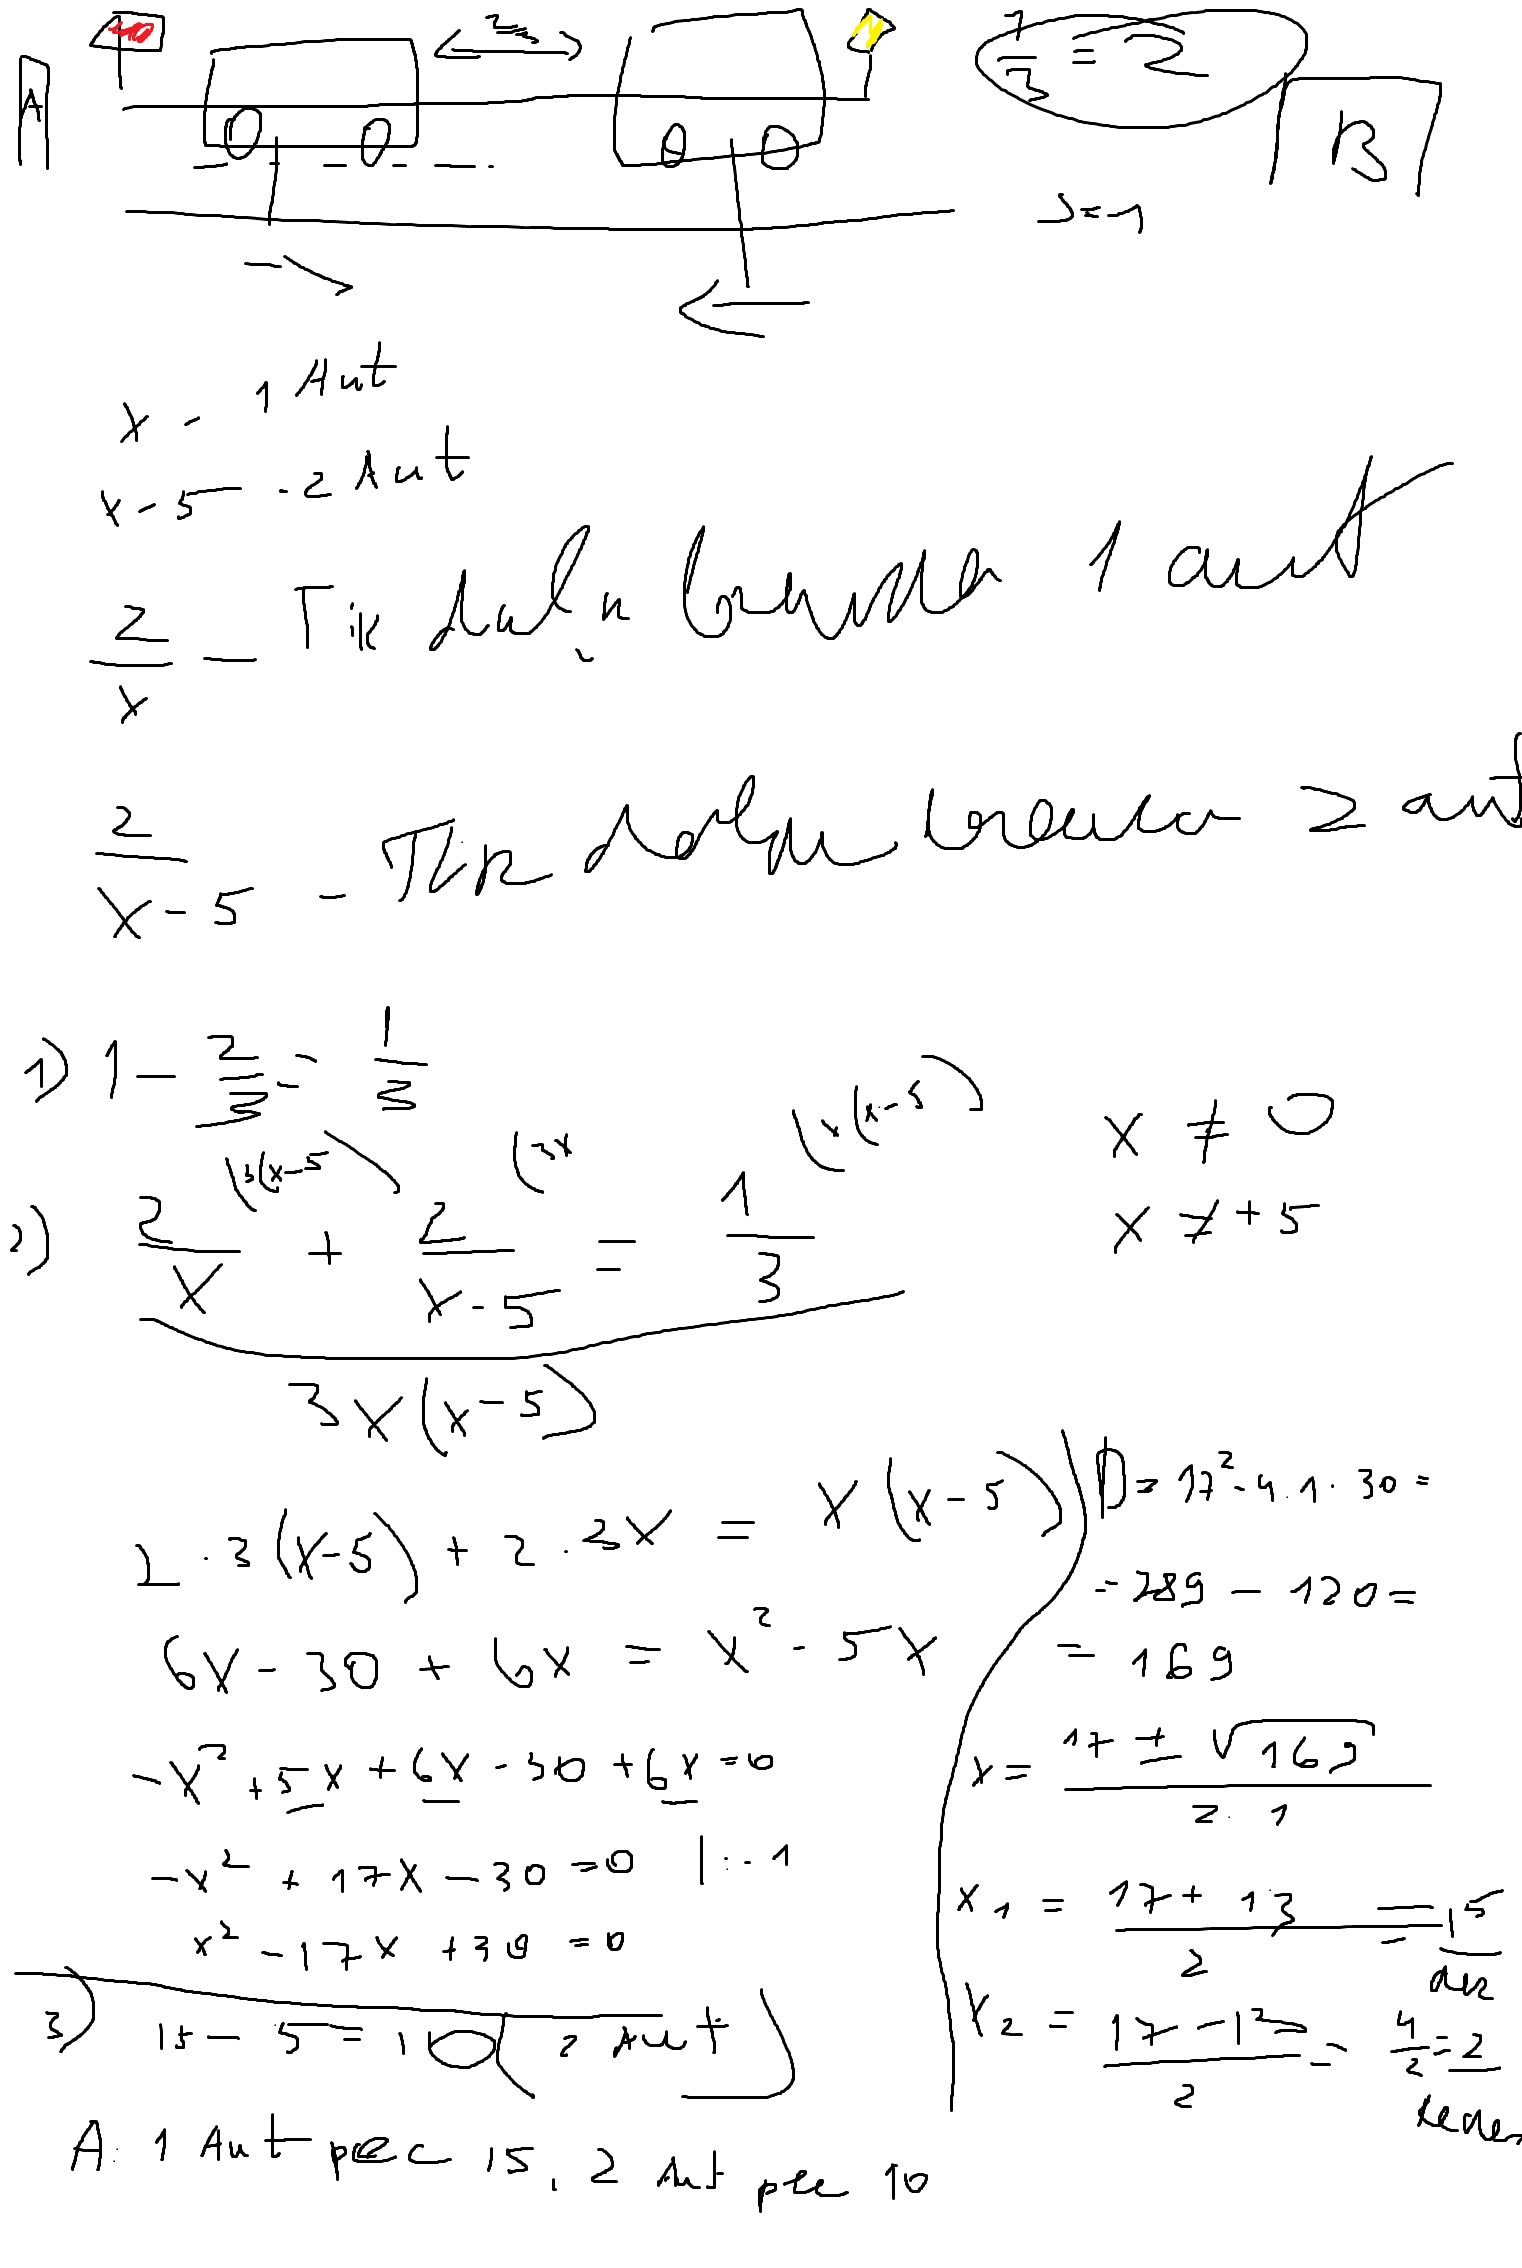 1/3 = 2
A
B
S=1
x - 1 Aut
x-5 - 2 Aut
2/x - Tik daļu 1 aut
2/(x-5) - Tik daļu 2 aut
1) 1 - 2/3 = 1/3
(3(x-5) (3x (x(x-5)
2) 2/x + 2/(x-5) = 1/3
x ≠ 0
x ≠ +5
3x(x-5)
2·3(x-5) + 2·3x = x(x-5)
6x - 30 + 6x = x² - 5x
-x² + 5x + 6x - 30 + 6x = 0
-x² + 17x - 30 = 0 |:-1
x² - 17x + 30 = 0
D = 17² - 4·1·30 =
= 289 - 120 =
= 169
x = (17 ± √169)/(2·1)
x₁ = (17 + 13)/2 = 15
der
x₂ = (17 - 13)/2 = 4/2 = 2
neder
3) 15 - 5 = 10 (2 Aut)
A: 1 Aut pēc 15, 2 Aut pēc 10